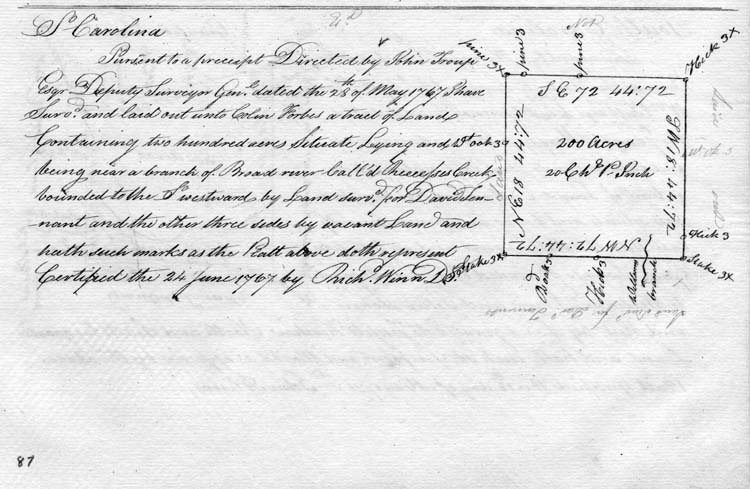 So Carolina
Pursent to a preceipt Directed by John Troup
Esqr Deputy Surveiyor Genl. dated the 28th of May 1767 I have
Survd. and laid out unto Colin Forbes a tract of Land
Containing two hundred acres Scituate Lying and
being near a branch of Broad river Call'd Creek
bounded to the So westward by Land survd. for David
nant and the other three sedes by vacant Land and
hath such marks as the Platt above doth represent
Certified the 24 June 1767 by Richd. Winn D. S.
pine 3X
pine 3
pine 3
Hick 3X
S E 72 44:72
N E 18 44:72
200 Acres
20 Chs. Pr. Inch
S W 18: 44:72
N W 72: 44:72
Hick 3
Stake 3X
Stake 3X
Hick 3
branch
87